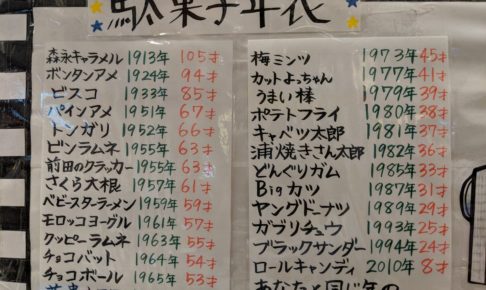 駄菓子年表
森永キャラメル 1913年 105才
ボンタンアメ 1924年 94才
ビスコ 1933年 85才
パインアメ 1951年 67才
トンガリ 1952年 66才
ビンラムネ 1955年 63才
前田のクラッカー 1955年 63才
さくら大根 1957年 61才
ベビースターラーメン 1959年 59才
モロッコヨーグル 1961年 57才
クッピーラムネ 1963年 55才
チョコバット 1964年 54才
チョコボール 1965年 53才
梅ミンツ 1973年 45才
カットよっちゃん 1977年 41才
うまい棒 1979年 39才
ポテトフライ 1980年 38才
キャベツ太郎 1981年 37才
蒲焼きさん太郎 1982年 36才
どんぐりガム 1985年 33才
Bigカツ 1987年 31才
ヤングドーナツ 1989年 29才
ガブリチュウ 1993年 25才
ブラックサンダー 1994年 24才
ロールキャンディ 2010年 8才
あなたと同じ年の